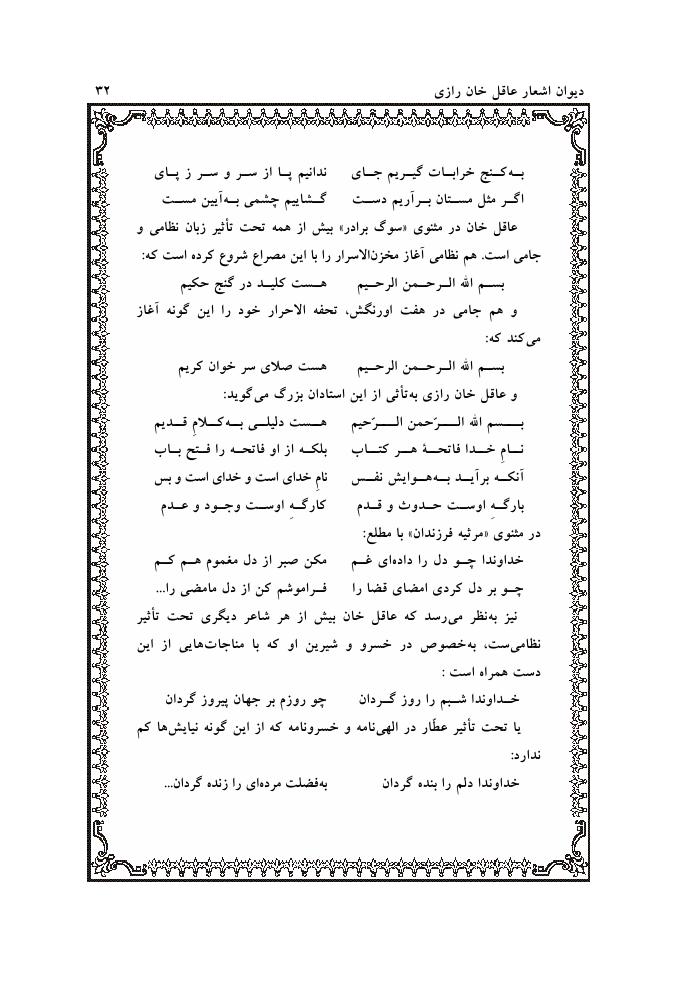 دیوان اشعار عاقل خان رازی ۳۲
به‌کنج خرابات گیریم جای ندانیم پا از سر و سر ز پای
اگر مثل مستان برآریم دست گشاییم چشمی به‌آیین مست
عاقل خان در مثنوی «سوگ برادر» بیش از همه تحت تأثیر زبان نظامی و
جامی است. هم نظامی آغاز مخزن‌الاسرار را با این مصراع شروع کرده است که:
بسم الله الرحمن الرحیم هست کلید در گنج حکیم
و هم جامی در هفت اورنگش، تحفه الاحرار خود را این گونه آغاز
می‌کند که:
بسم الله الرحمن الرحیم هست صلای سر خوان کریم
و عاقل خان رازی به‌تأثی از این استادان بزرگ می‌گوید:
بسم الله الرّحمن الرّحیم هست دلیلی به‌کلامِ قدیم
نامِ خدا فاتحهٔ هر کتاب بلکه از او فاتحه را فتح باب
آنکه برآید به‌هوایش نفس نامِ خدای است و خدای است و بس
بارگهِ اوست حدوث و قدم کارگهِ اوست وجود و عدم
در مثنوی «مرثیه فرزندان» با مطلع:
خداوندا چو دل را داده‌ای غم مکن صبر از دل مغموم هم کم
چو بر دل کردی امضای قضا را فراموشم کن از دل مامضی را...
نیز به‌نظر می‌رسد که عاقل خان بیش از هر شاعر دیگری تحت تأثیر
نظامی‌ست، به‌خصوص در خسرو و شیرین او که با مناجات‌هایی از این
دست همراه است :
خداوندا شبم را روز گردان چو روزم بر جهان پیروز گردان
یا تحت تأثیر عطّار در الهی‌نامه و خسرونامه که از این گونه نیایش‌ها کم
ندارد:
خداوندا دلم را بنده گردان به‌فضلت مرده‌ای را زنده گردان...